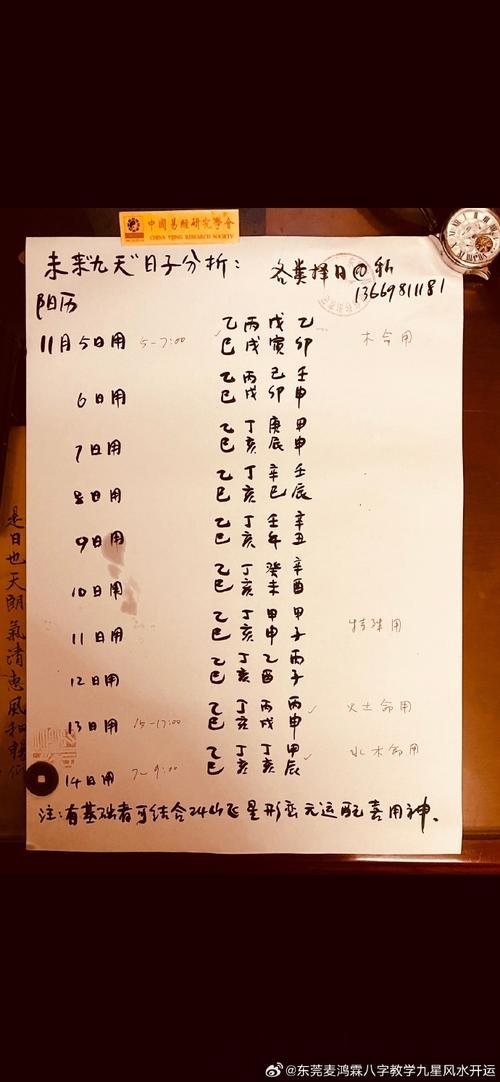 中国易經研究學會
CHINA YIJING RESEARCH SOCIETY
未来"九天"日子分析：
各类择日@私
13669811181
阳历
11月5日用 5-7:00 乙丙戊乙 木命用
巳戌寅卯
6日用 乙丙己壬
巳戌卯申
7日用 乙丁庚甲
巳亥辰申
8日用 乙丁辛壬
巳亥巳辰
9日用 乙丁壬辛
巳亥午丑
10日用 乙丁癸辛
巳亥未酉
11日用 乙丁甲甲 特殊用
巳亥申子
12日用 乙丁乙丙
巳亥酉子
13日用 15-17:00 乙丁丙丙 火土命用
巳亥戌申
14日用 7-9:00 乙丁丁甲 水木命用
巳亥亥辰
注：有基础者可结合24山飞星形峦元运配喜用神。
是日也天朗氣清惠風和暢
@东莞麦鸿霖八字教学九星风水开运